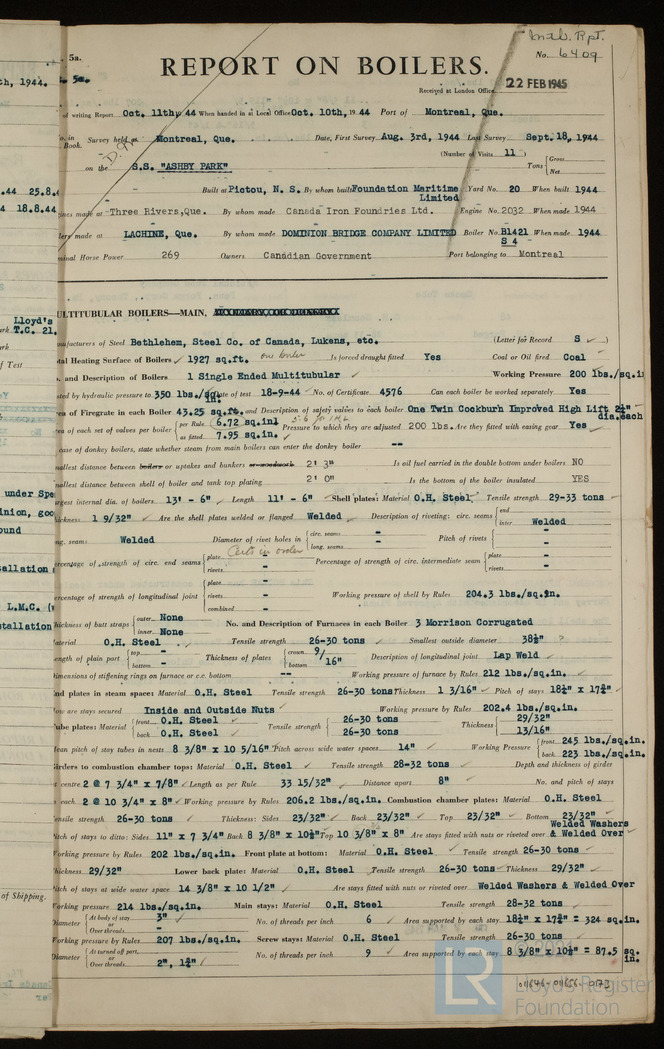 Mtl. Rpt.
5a. No. 6409
REPORT ON BOILERS.
Received at London Office 22 FEB 1945
of writing Report Oct. 11th, 44 When handed in at Local Office Oct. 10th, 19 44 Port of Montreal, Que.
No. in Book. Survey held at Montreal, Que. Date, First Survey Aug. 3rd, 1944 Last Survey Sept. 18, 1944
(Number of Visits 11 )
on the S.S. "ASHBY PARK" Tons { Gross Net
Built at Pictou, N. S. By whom built Foundation Maritime Limited Yard No. 20 When built 1944
gines made at Three Rivers, Que. By whom made Canada Iron Foundries Ltd. Engine No. 2032 When made 1944
lers made at LACHINE, Que. By whom made DOMINION BRIDGE COMPANY LIMITED Boiler No. B1421 S 4 When made 1944
minal Horse Power 269 Owners Canadian Government Port belonging to Montreal
ULTITUBULAR BOILERS—MAIN,
nufacturers of Steel Bethlehem, Steel Co. of Canada, Lukens, etc. (Letter for Record S )
tal Heating Surface of Boilers 1927 sq.ft. one boiler Is forced draught fitted Yes Coal or Oil fired Coal
. and Description of Boilers 1 Single Ended Multitubular Working Pressure 200 lbs./sq.i
sted by hydraulic pressure to 350 lbs./sq.in. Date of test 18-9-44 No. of Certificate 4576 Can each boiler be worked separately Yes
ea of Firegrate in each Boiler 43.25 sq.ft. No. and Description of safety valves to each boiler One Twin Cockburn Improved High Lift 2½" dia.each
rea of each set of valves per boiler { per Rule 6.72 sq.in. as fitted 7.95 sq.in. Pressure to which they are adjusted 200 lbs. Are they fitted with easing gear Yes
case of donkey boilers, state whether steam from main boilers can enter the donkey boiler --
mallest distance between boilers or uptakes and bunkers or woodwork 2' 3" Is oil fuel carried in the double bottom under boilers NO
mallest distance between shell of boiler and tank top plating 2' 0" Is the bottom of the boiler insulated YES
argest internal dia. of boilers 13' - 6" Length 11' - 6" Shell plates: Material O.H. Steel Tensile strength 29-33 tons
hickness 1 9/32" Are the shell plates welded or flanged Welded Description of riveting: circ. seams { end inter Welded
ng. seams Welded Diameter of rivet holes in { circ. seams - long. seams - Pitch of rivets { - -
ercentage of strength of circ. end seams { plate Certs in order rivets - Percentage of strength of circ. intermediate seam { plate - rivets -
ercentage of strength of longitudinal joint { plate - rivets - combined - Working pressure of shell by Rules 204.3 lbs./sq.in.
hickness of butt straps { outer None inner None No. and Description of Furnaces in each Boiler 3 Morrison Corrugated
aterial O.H. Steel Tensile strength 26-30 tons Smallest outside diameter 38½" ?
ength of plain part { top - bottom - Thickness of plates { crown bottom 9/16" Description of longitudinal joint Lap Weld
imensions of stiffening rings on furnace or c.c. bottom -- Working pressure of furnace by Rules 212 lbs./sq.in.
nd plates in steam space: Material O.H. Steel Tensile strength 26-30 tons Thickness 1 3/16" Pitch of stays 18½" x 17½"
ow are stays secured Inside and Outside Nuts Working pressure by Rules 202.4 lbs./sq.in.
ube plates: Material { front O.H. Steel back O.H. Steel Tensile strength { 26-30 tons 26-30 tons Thickness { 29/32" 13/16"
ean pitch of stay tubes in nests 8 3/8" x 10 5/16" Pitch across wide water spaces 14" Working Pressure { front 245 lbs./sq.in. back 223 lbs./sq.in.
irders to combustion chamber tops: Material O.H. Steel Tensile strength 28-32 tons Depth and thickness of girder
t centre 2 @ 7 3/4" x 7/8" Length as per Rule 33 15/32" Distance apart 8" No. and pitch of stays
n each 2 @ 10 3/4" x 8" Working pressure by Rules 206.2 lbs./sq.in. Combustion chamber plates: Material O.H. Steel
ensile strength 26-30 tons Thickness: Sides 23/32" Back 23/32" Top 23/32" Bottom 23/32"
Pitch of stays to ditto: Sides 11" x 7 3/4" Back 8 3/8" x 10½" Top 10 3/8" x 8" Are stays fitted with nuts or riveted over Welded Washers & Welded Over
Working pressure by Rules 202 lbs./sq.in. Front plate at bottom: Material O.H. Steel Tensile strength 26-30 tons
hickness 29/32" Lower back plate: Material O.H. Steel Tensile strength 26-30 tons Thickness 29/32"
Pitch of stays at wide water space 14 3/8" x 10 1/2" Are stays fitted with nuts or riveted over Welded Washers & Welded Over
Working pressure 214 lbs./sq.in. Main stays: Material O.H. Steel Tensile strength 28-32 tons
Diameter { At body of stay 3" or Over threads - No. of threads per inch 6 Area supported by each stay 18½" x 17½" = 324 sq.in.
Working pressure by Rules 207 lbs./sq.in. Screw stays: Material O.H. Steel Tensile strength 26-30 tons
Diameter { At turned off part - or Over threads 2", 1¾" No. of threads per inch 9 Area supported by each stay 8 3/8" x 10½" = 87.5 sq. in.
011646-011656-0173
LR
© 2021
Lloyd's Register
Foundation
th, 1944.
.44 25.8.4
44 18.8.44
Lloyd's
T.C. 21.
f Test
under Spe
inion, goo
ound
tallation
L.M.C. (w
stallation
of Shipping.